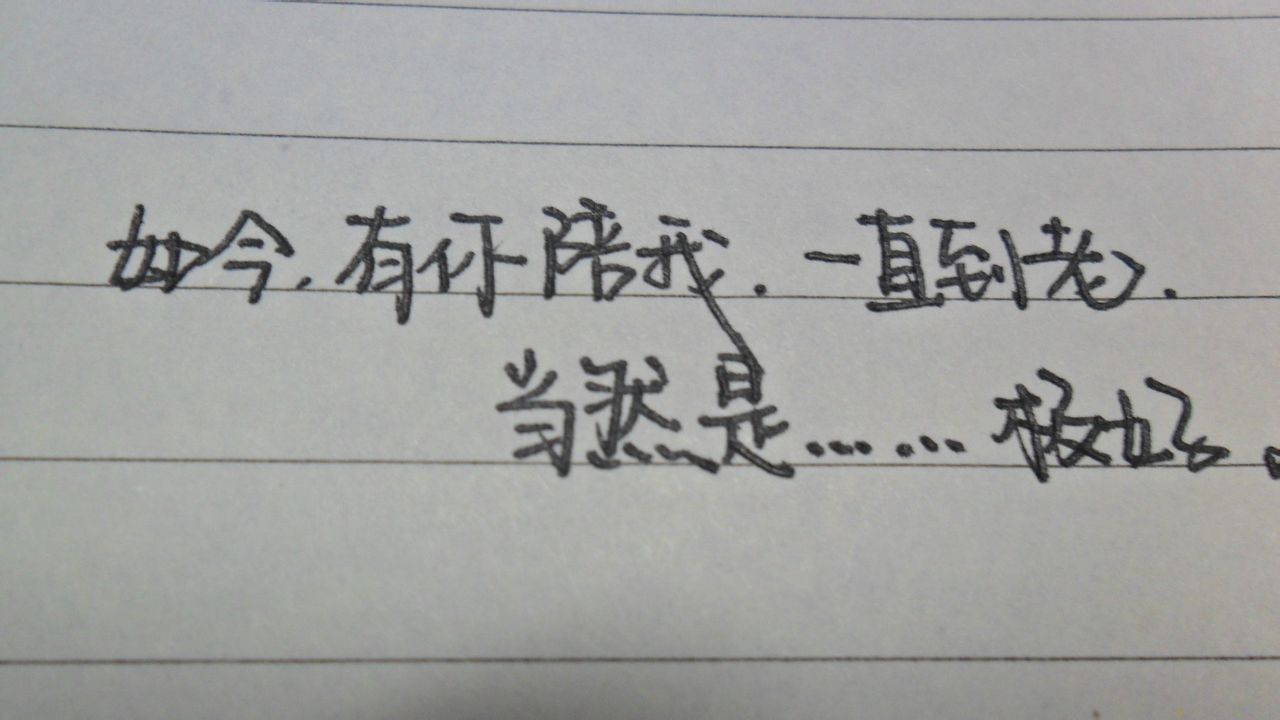 如今.有你陪我.一直到老.
当然是……极好。